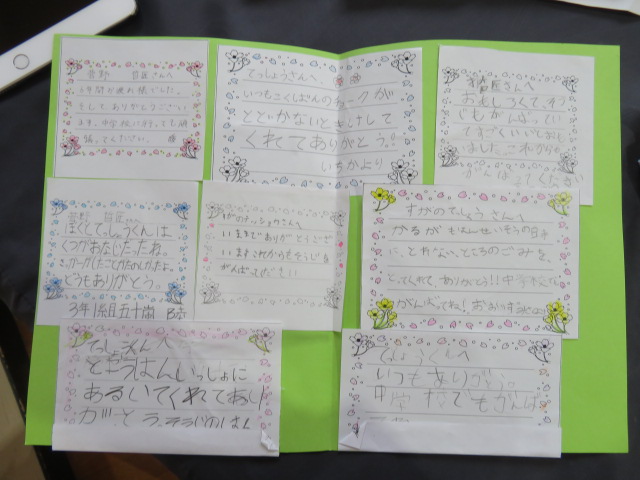 菅野 哲匠さんへ
6年間お疲れ様でした。
そしてありがとうござい
ます。中学校に行っても頑
張ってください。
てっしょうさんへ
いつもこくばんのチョークが
とどかないときけして
くれてありがとう。
いちかより
さんへ
おもしろくてそう
じもがんばってい
てすごくいいとおも
いました。これからも
がんばってください
菅野 哲匠さん
ぼくとてっしょうくんは
くつがおなじだったね。
どうもありがとう。
3年1組五十嵐
すがのてっしょうさんへ
いままでありがとうござ
いますこれからもそうじを
がんばってください
すがのてっしょうさんへ
かるがもはんせいそうの日に
に、とれないところのごみを
とってくれて、ありがとう!!中学校でも
がんばってね!
てっしょうさんへ
とうこうはんいっしょに
あるいてくれてあり
がとう。
てっしょうくんへ
いつもありがとう。
中学校でもがんば